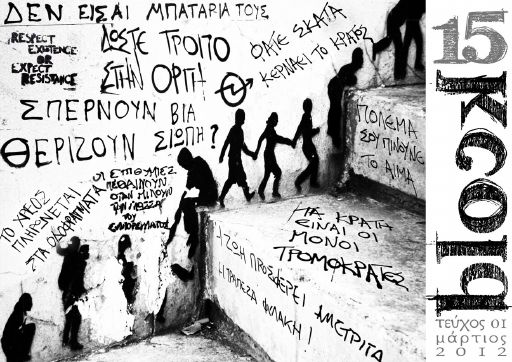 ΔΕΝ ΕΙΣΑΙ ΜΠΑΤΑΡΙΑ ΤΟΥΣ
RESPECT
EXISTENCE
OR
EXPECT
RESISTANCE
ΔΩΣΤΕ ΤΡΟΠΟ
ΣΤΗΝ ΟΡΓΗ
ΦΑΤΕ ΣΚΑΤΑ
ΚΕΡΝΑΕΙ ΤΟ ΚΡΑΤΟΣ
ΣΠΕΡΝΟΥΝ ΒΙΑ
ΘΕΡΙΖΟΥΝ ΣΙΩΠΗ?
ΠΟΛΕΜΑ
ΣΟΥ ΠΙΝΟΥΝΕ
ΤΟ ΑΙΜΑ
ΟΙ ΕΠΙΘΥΜΙΕΣ
ΠΕΘΑΙΝΟΥΝ
ΟΤΑΝ ΜΙΛΟΥΝ
ΤΗΝ ΓΛΩΣΣΑ
ΤΟΥ
ΤΟ ΧΡΕΟΣ
ΠΛΗΡΩΝΕΤΑΙ
ΣΤΑ ΟΔΟΦΡΑΓΜΑΤΑ
ΤΑ ΚΡΑΤΗ
ΕΙΝΑΙ ΟΙ
ΜΟΝΟΙ
ΤΡΟΜΟΚΡΑΤΕΣ
Η ΖΩΗ ΠΡΟΣΦΕΡΕΙ ΑΜΕΤΡΗΤΑ
Η ΤΡΑΠΕΖΑ ΦΥΛΑΚΗ!
15
τεύχος 01
μάρτιος
2012